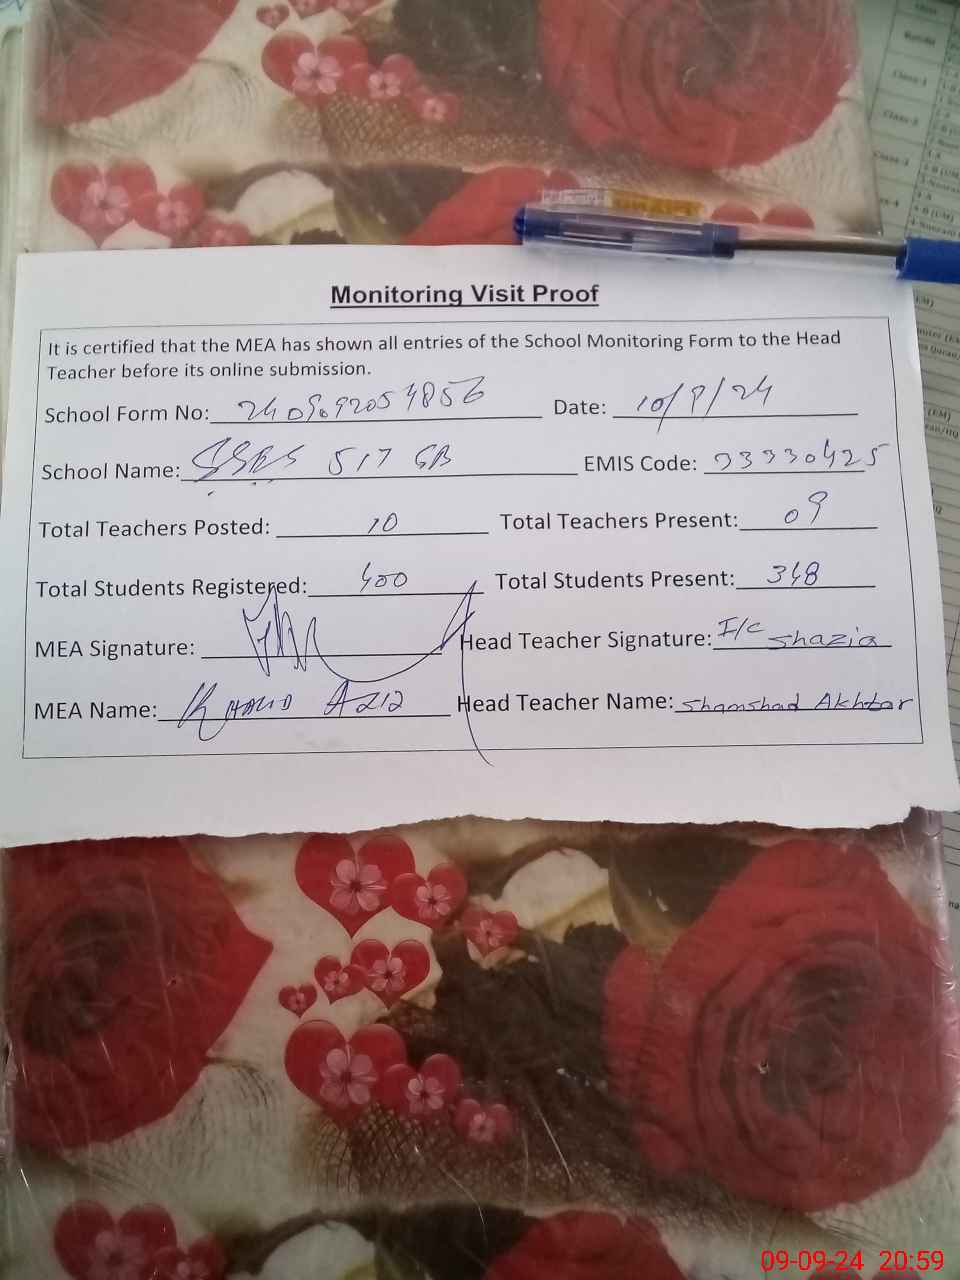 Monitoring Visit Proof
It is certified that the MEA has shown all entries of the School Monitoring Form to the Head
Teacher before its online submission.
School Form No: Date: 10/9/24
School Name: 517 GB EMIS Code: 33330425
Total Teachers Posted: 10 Total Teachers Present: 09
Total Students Registered: 400 Total Students Present: 348
MEA Signature: Head Teacher Signature: I/c Shazia
MEA Name: Khalid Aziz Head Teacher Name: Shamshad Akhtar
Class-1
09-09-24 20:59